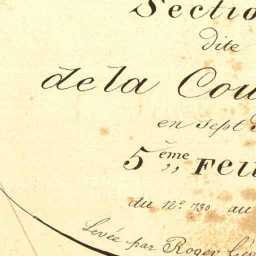 Sectio
dite
de la Cou
en sept
5ème Feu
du n° 730 au
Levée par Roger Gé